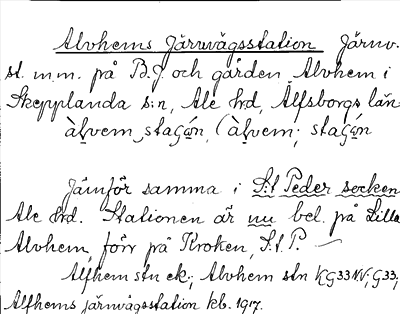 Alvhems Järnvägsstation Järnv.
st. m.m. på B.J. och gården Alvhem i
Skepplanda s:n, Ale hd, Älfsborgs län
àlvem, stаʃo̱n, (àlvem; stаʃo̱n
Jämför samma i S:t Peder socken
Ale hd. Stationen är nu bel. på Lilla
Alvhem, förr på Kroken, S.t P. —
Alfhem stn ek.; Alvhem stn KG33KV; G33;
Alfhems järnvägsstation kb. 1917.